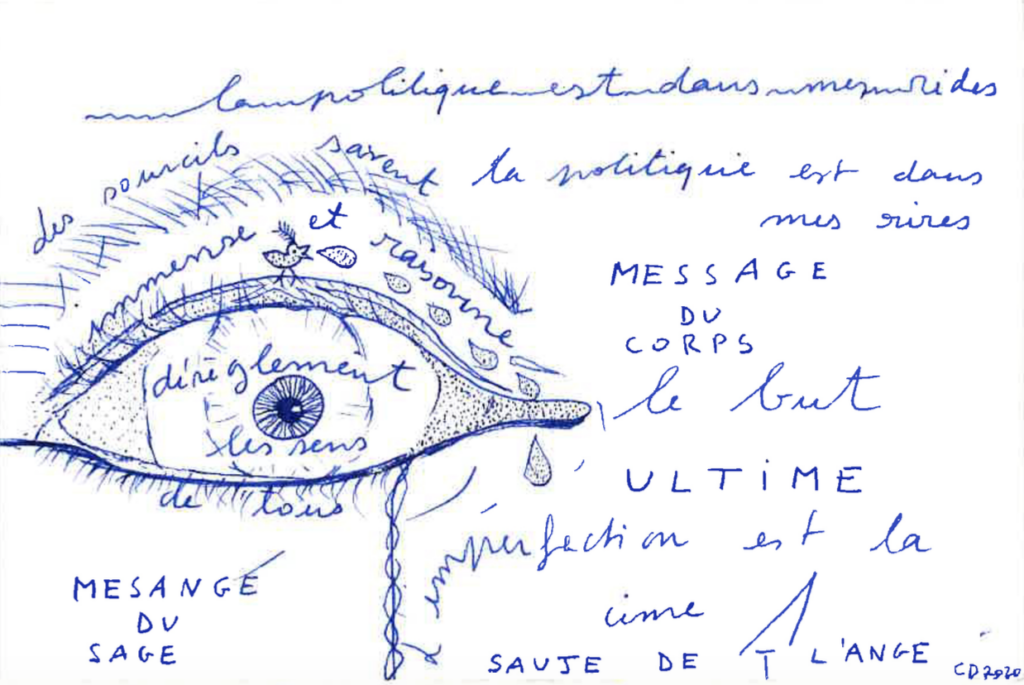 la politique est dans mes rides
des sourcils savent
la politique est dans
mes rires
immense et raisonné
MESSAGE
DU
CORPS
dérèglement
le but
les sens
ULTIME
de tous
imperfection est la
cime
MESANGE
DU
SAGE
SAUJE DE L'ANGE
CD2020